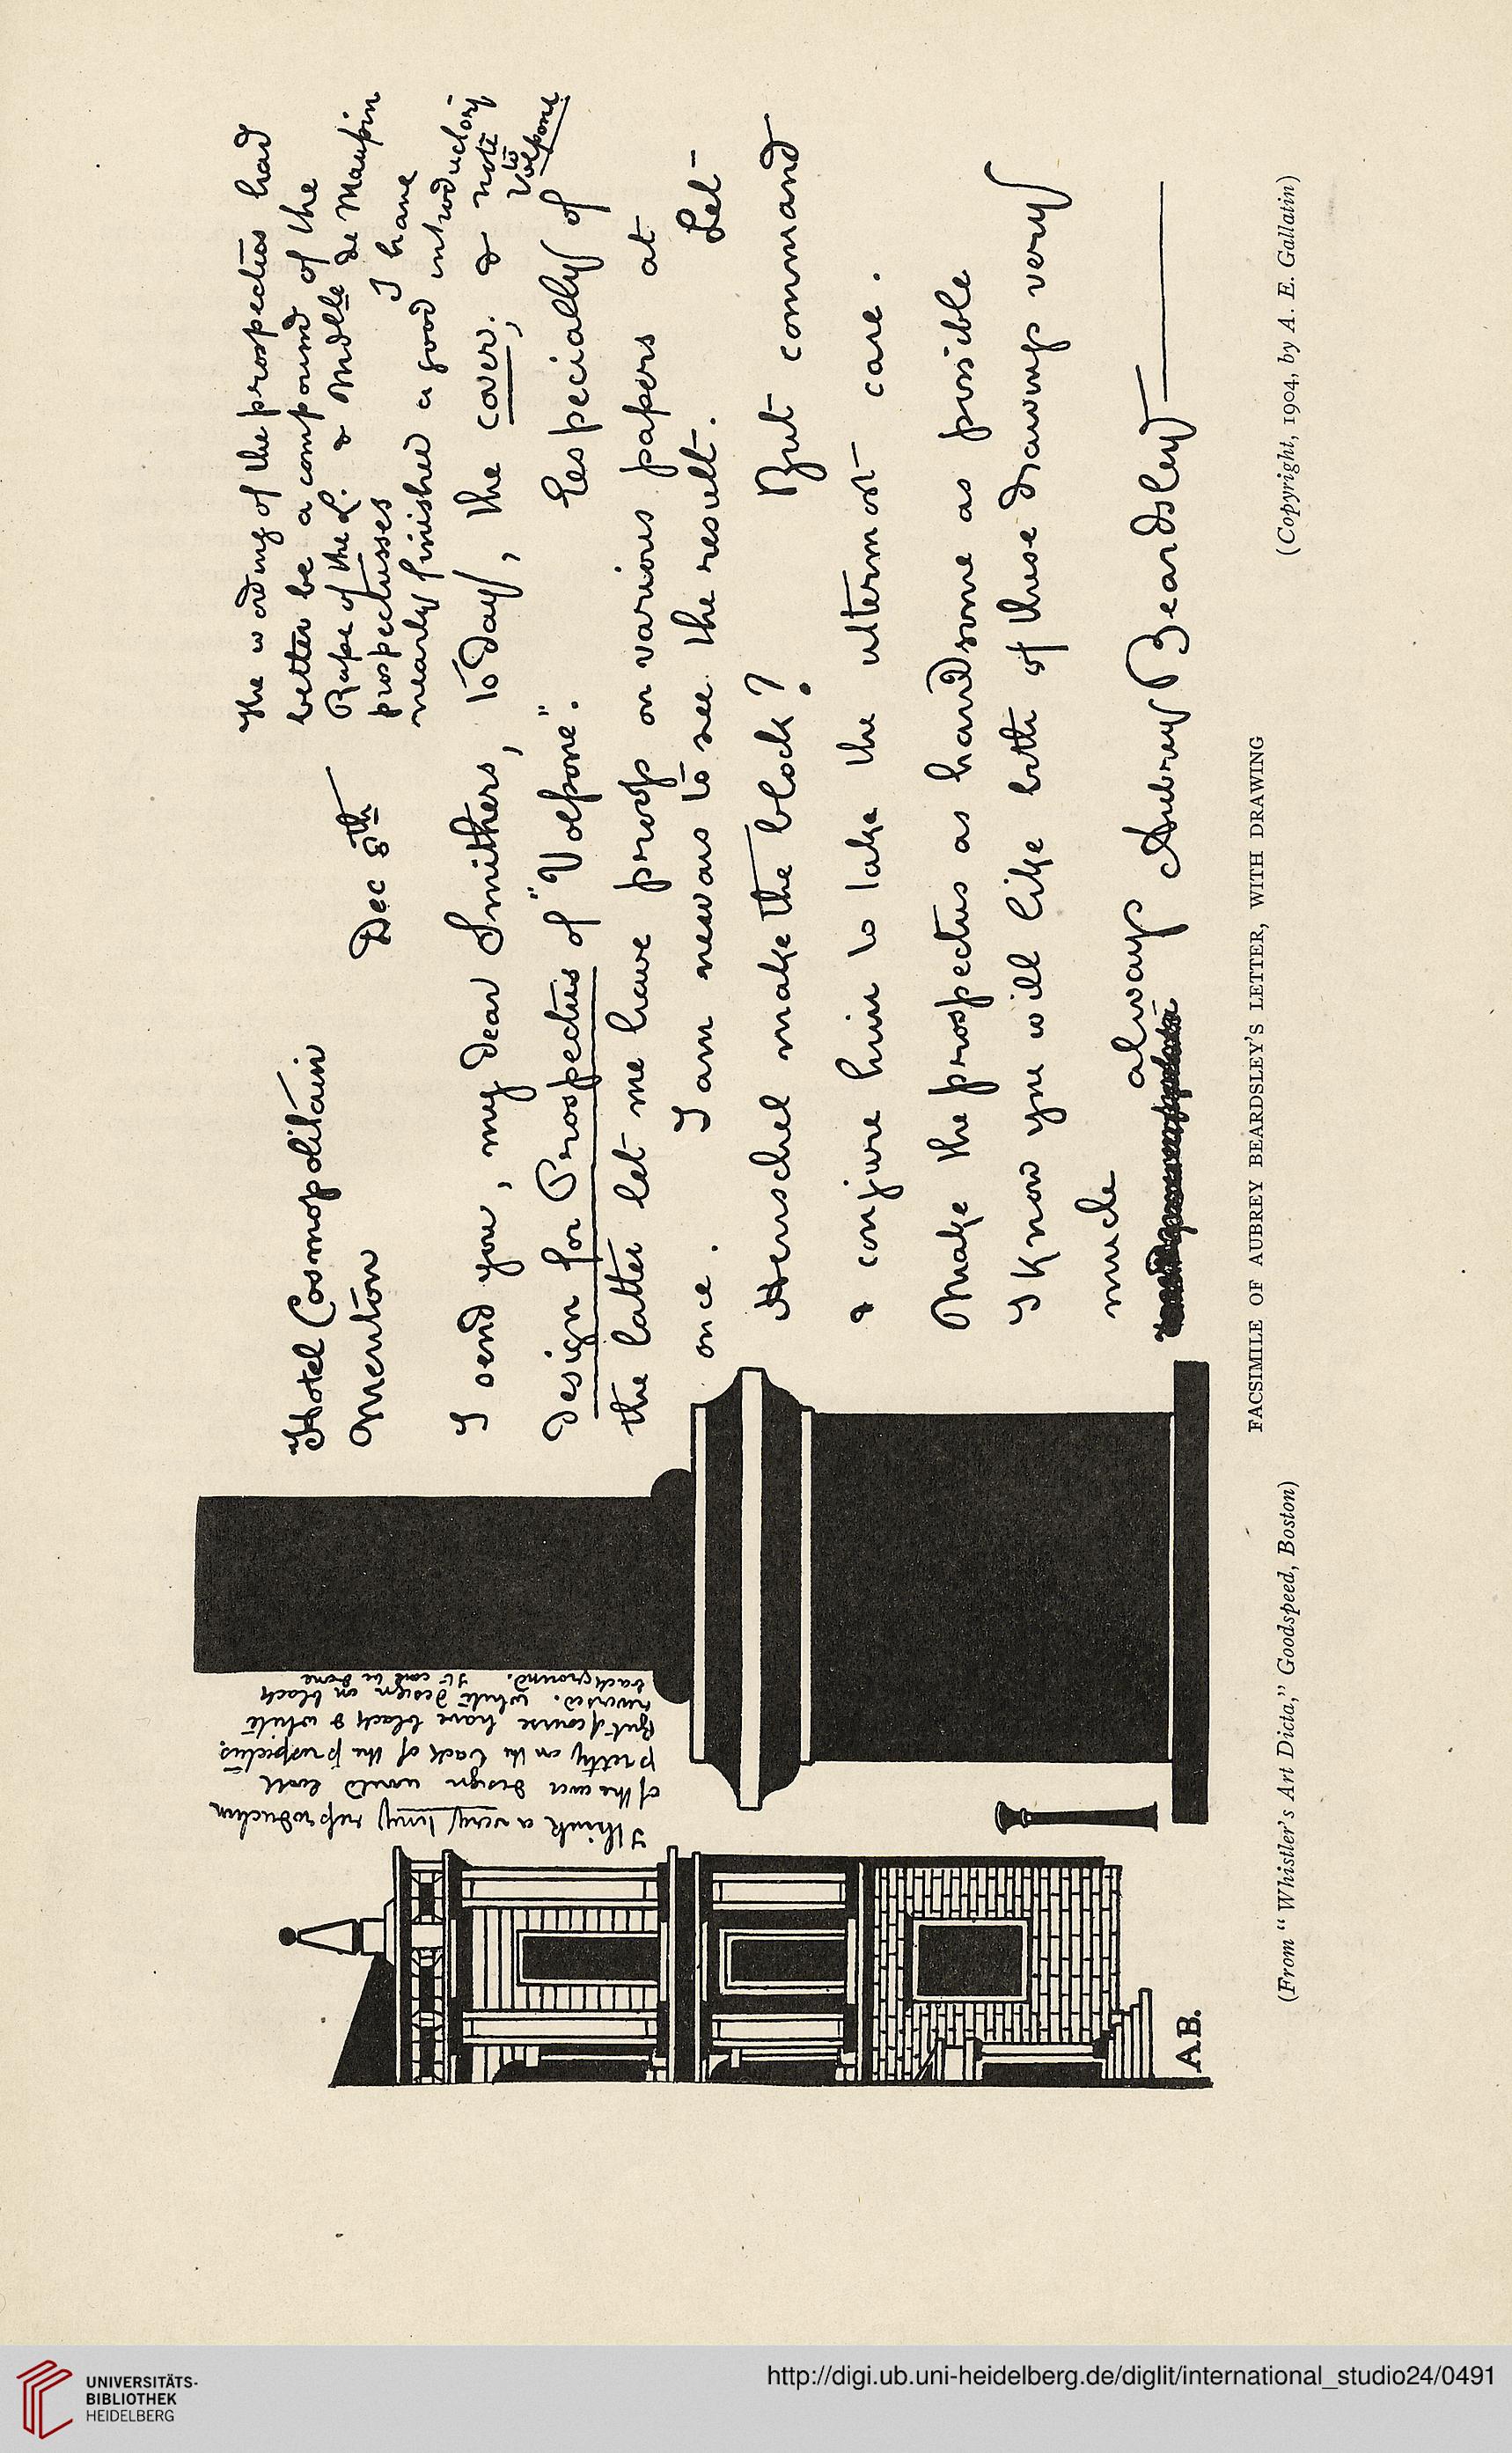 Hotel Cosmopolitain
Menton
Dec 8th
The wording of the prospectus had
better be a compound of the
Rape of the L. & Mdlle de Maupin
prospectusses I have
nearly finished a good introductory
note
to
Volpone
I send you, my dear Smithers, to day, the cover, &
design for Prospectus of "Volpone". Especially of
the latter let me have proofs on various papers at
once. I am nervous to see the result. Let
Henschel make the block? But command
& conjure him to take the uttermost care.
Make the prospectus as handsome as possible
I know you will like both of these drawings very
much
always Aubrey Beardsley
I think a very tiny reproduction
of the cover design would look
pretty on the back of the prospectus
But of course have black & white
reversed. White design on black
background. It can be done
A.B.
FACSIMILE OF AUBREY BEARDSLEY'S LETTER, WITH DRAWING
(From "Whistler's Art Dicta," Goodspeed, Boston) (Copyright, 1904, by A. E. Gallatin)
UNIVERSITÄTS-
BIBLIOTHEK
HEIDELBERG
http://digi.ub.uni-heidelberg.de/diglit/international_studio24/0491